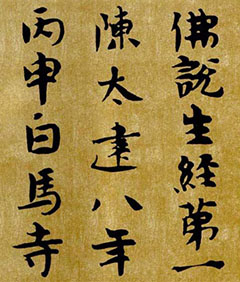 佛說生經第一
陳太建八年
丙申白馬寺